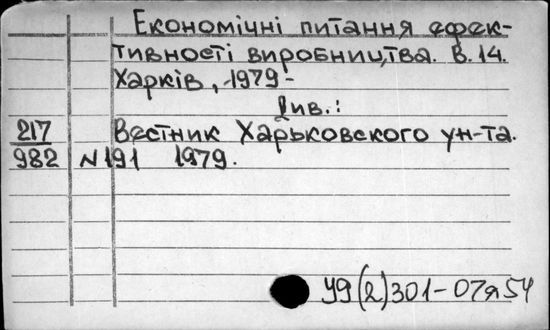 Економічні питання ефек-
тивності виробництва. в. 14.
Харків, 1979-
Див.:
217 Вестник Харьковского ун-та.
982 N191 1979.
У9(2)301-07я54